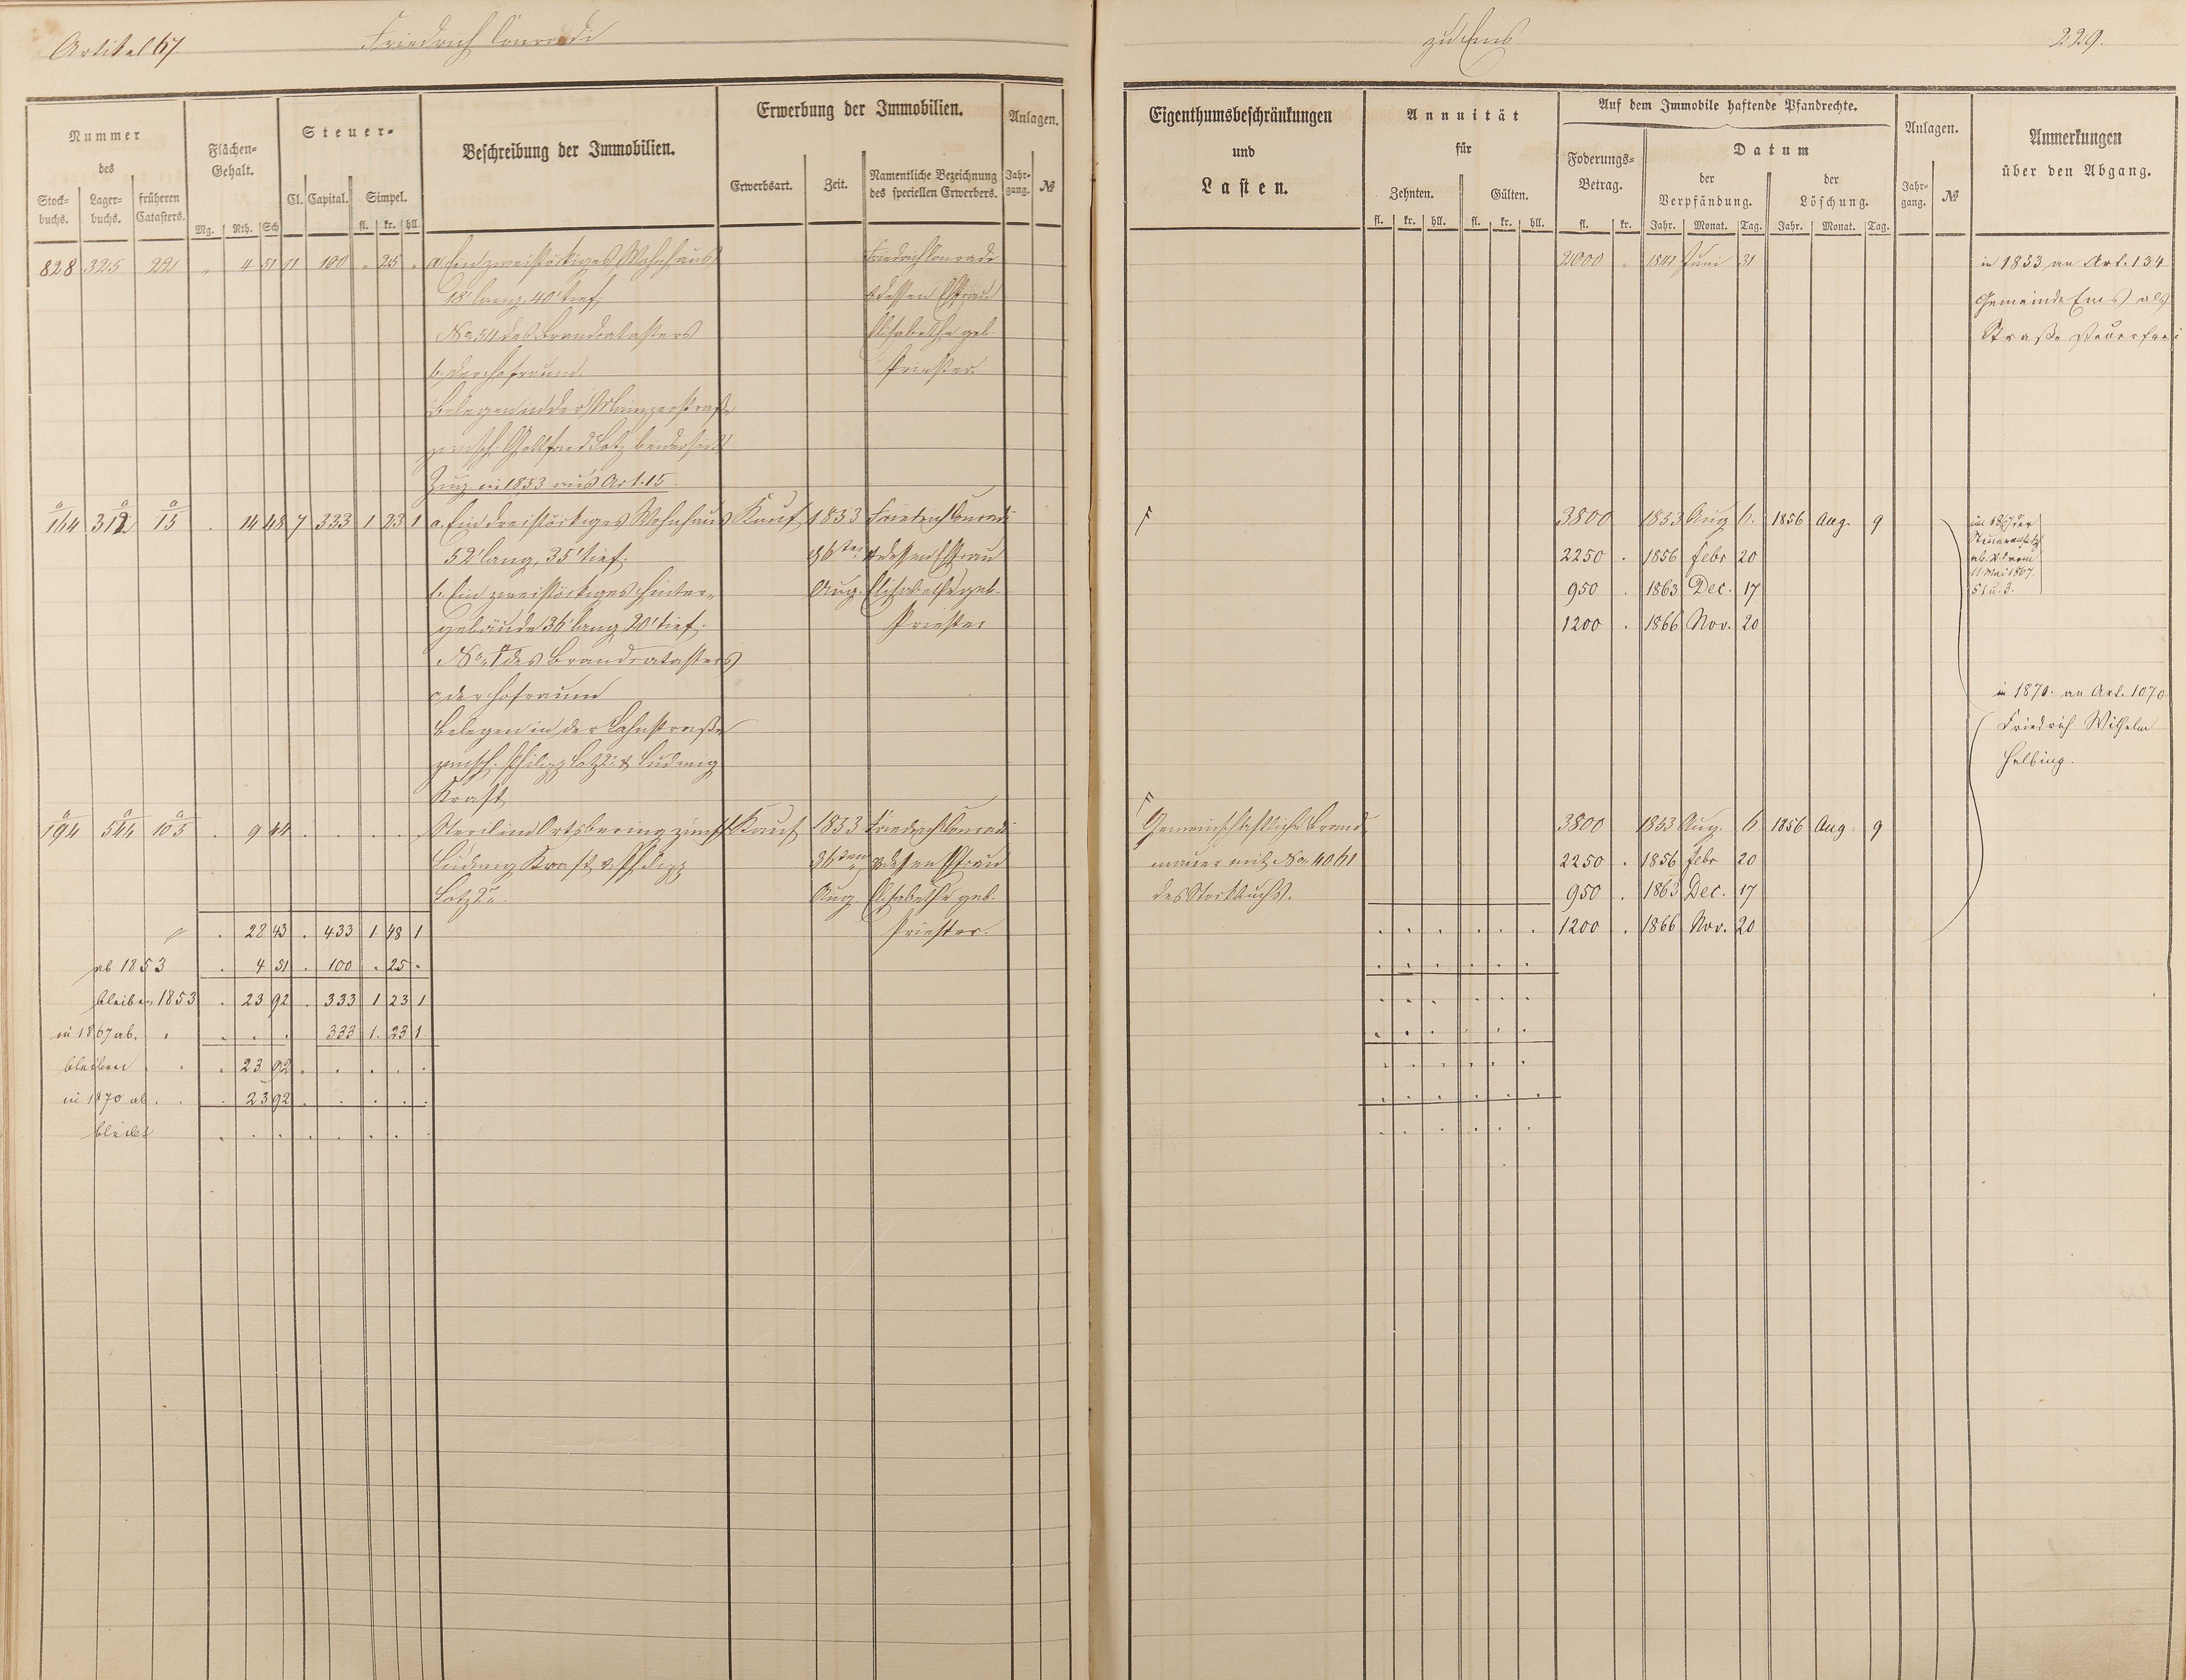 Artikel 67
Friedrich Conradi
zu Ems
229.
Nummer
des
Stock-
buchs.
Lager-
buchs.
früheren
Catasters.
Flächen-
Gehalt.
Mg. Rth. Sch
Steuer-
Cl. Capital. Simpel.
fl. kr. hll.
Beschreibung der Immobilien.
Erwerbung der Immobilien.
Erwerbsart. Zeit.
Namentliche Bezeichnung
des speciellen Erwerbers.
Anlagen.
Jahr-
gang.
№
Eigenthumsbeschränkungen
und
Lasten.
Annuität
für
Zehnten. Gülten.
fl. kr. hll. fl. kr. hll.
Auf dem Immobile haftende Pfandrechte.
Foderungs-
Betrag.
fl. kr.
Datum
der
Verpfändung.
der
Löschung.
Jahr. Monat. Tag. Jahr. Monat. Tag.
Anlagen.
Jahr-
gang.
№
Anmerkungen
über den Abgang.
828 325 4 51 100 25 a. Ein zweistöckiges Wohnhaus Friedrich Conradi 2000 Juni in 1853 an Art. 134
18' lang, 40' tief, & dessen Ehefrau Gemeinde Ems als
No 54 des Brandcatasters Elisabethe geb. Straße steuerfrei
b. der Hofraum Priester.
belegen in der Mainzerstraße
zwisch. Gottfried Lotz beiderseits
Zug. in 1853 aus Art. 15.
a/164 a/15 14 48 7 333 1 23 1 a. Ein dreistöckiges Wohnhaus Kauf 1853 Friedrich Conradi 3800 1853 Aug. 6. 1856 Aug. 9
52' lang, 35' tief. d 6ten & dessen Ehefrau 2250 . 1856 Febr 20
b. Ein zweistöckiges Hinter- Aug. Elisabethe geb. 950 . 1863 Dec. 17
gebäude 36' lang 20' tief. Priester 1200 . 1866 Nov. 20
des Brandcatasters
c. der Hofraum
belegen in der Lahnstraße
zwisch. Philipp Lotz & Ludwig
Kraft
in 1867 der
11 Mai 1867.
in 1870. an Art. 1070
Friedrich Wilhelm
Helbing.
a/194 a/544 a/105 9 44 Steril im Ortsbering zwisch. Kauf 1853 Friedrich Conradi Gemeinschaftliche Brand- 3800 1853 Aug. 6 1856 Aug. 9
Ludwig Kraft & Philipp d 6ten & dessen Ehefrau mauer mit No 4061 2250 . 1856 Febr 20
Lotz Aug. Elisabethe geb. des Stockbuchs. 950 . 1863 Dec. 17
28 43 . 433 1 48 1 Priester. 1200 . 1866 Nov. 20
ab 1853 4 51 . 100 . 25 .
bleiben 1853 23 92 . 333 1 23 1
in 1867 ab. 333 1. 23 1
bleiben 23 92
in 1870 ab. 23 92
bleibt